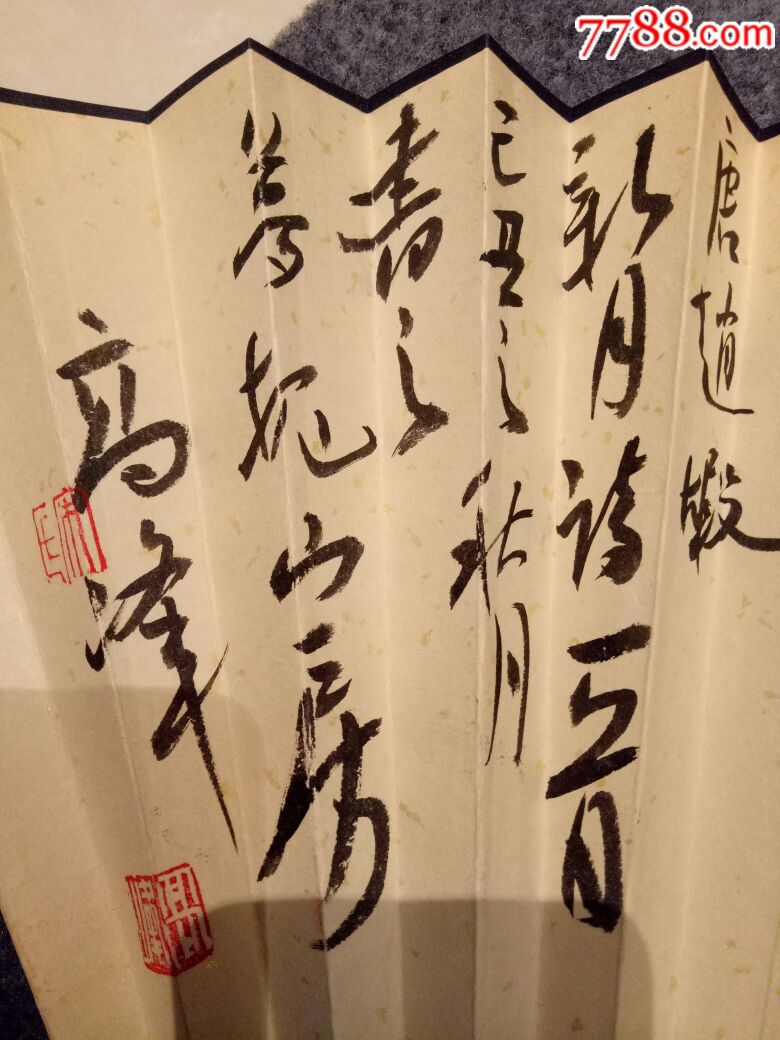 7788.com
唐趙嘏
新月詩一首
己丑之秋月
書之
山房
高峰